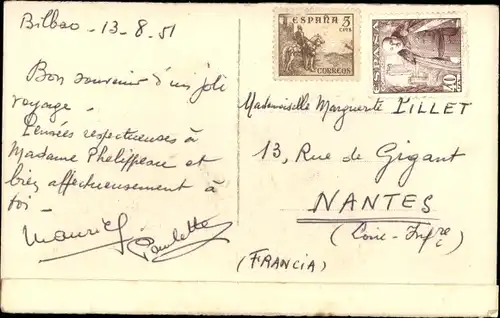 Bilbao - 13-8-51
Bon souvenir d'un joli
voyage -
Pensées respectueuses à
Madame Phelippeau et
bien affectueusement à
toi -
Maurice
Paulette
ESPAÑA 5
CTS
CORREOS
ESPAÑA
40
Mademoiselle Marguerite TILLET
13, Rue de Gigant
NANTES
(Loire-Infre)
(FRANCIA)